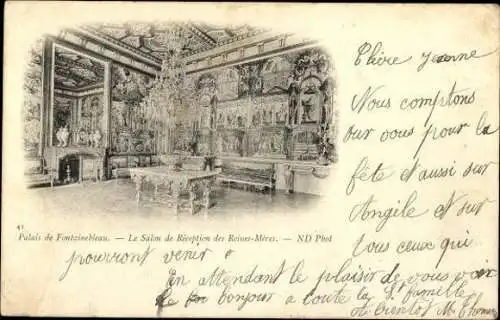 Chère Jeanne
Nous comptons
sur vous pour la
fête aussi sur
Angèle et sur
tous ceux qui
41
Palais de Fontainebleau. — Le Salon de Réception des Reines-Mères. — ND Phot
pourront venir
En attendant le plaisir de vous voir
bonjour a toute la Ste famille
A bientôt M. Thomas